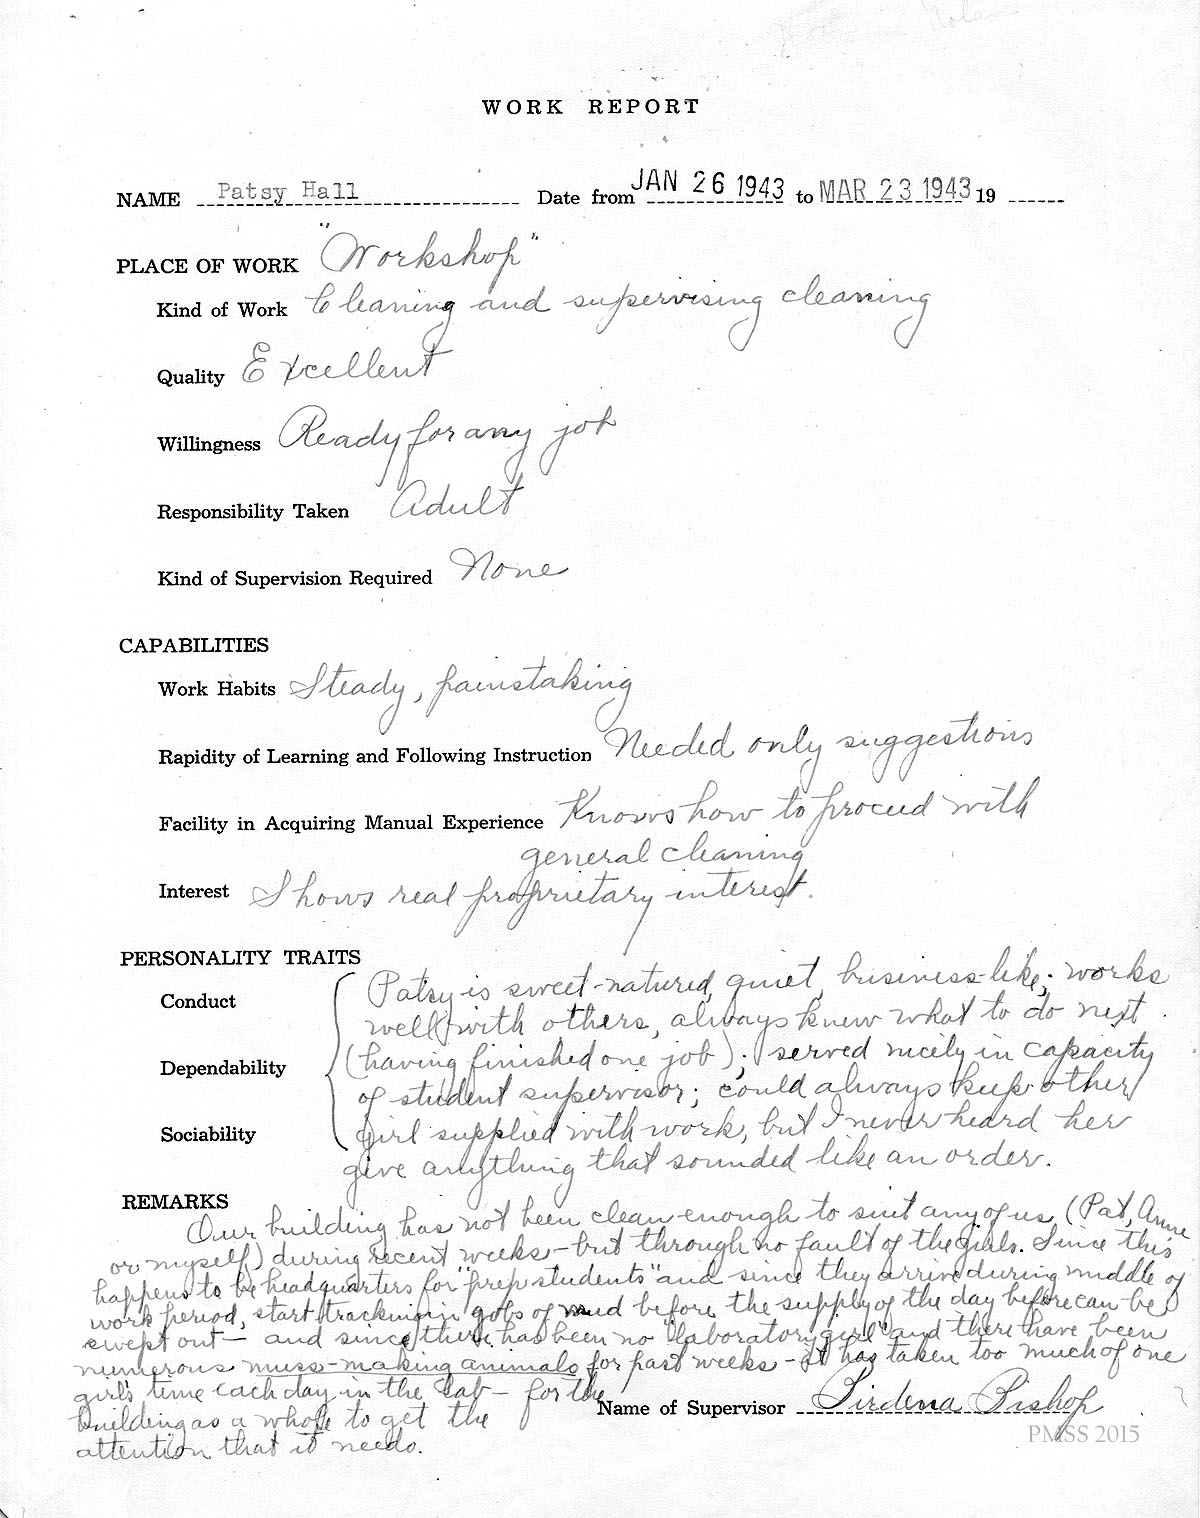 WORK REPORT
NAME Patsy Hall Date from JAN 26 1943 to MAR 23 1943 19
PLACE OF WORK "Workshop"
Kind of Work Cleaning and supervising cleaning
Quality Excellent
Willingness Ready for any job
Responsibility Taken Adult
Kind of Supervision Required None
CAPABILITIES
Work Habits Steady, painstaking
Rapidity of Learning and Following Instruction Needed only suggestions
Facility in Acquiring Manual Experience Knows how to proceed with
general cleaning
Interest Shows real proprietary interest.
PERSONALITY TRAITS
Conduct
Dependability
Sociability
Patsy is sweet-natured, quiet, business-like; works
well with others, always knew what to do next
(having finished one job); served nicely in capacity
of student supervisor; could always keep other
girl supplied with work, but I never heard her
give anything that sounded like an order.
REMARKS
Our building has not been clean enough to suit any of us (Pat, Anne
or myself) during recent weeks - but through no fault of the girls. Since this
happens to be headquarters for "prep students" and since they arrive during middle of
work period, start tracking in gobs of mud before the supply of the day before can be
swept out - and since there has been no "laboratory girl" and there have been
numerous muss-making animals for past weeks - it has taken too much of one
girl's time each day in the lab - for the
building as a whole to get the
attention that it needs.
Name of Supervisor Birdena Bishop
PMSS 2015